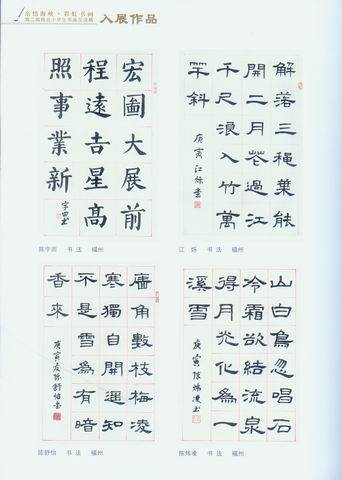 亲情海峡·彩虹书画
第二届榕台小学生书画交流展
入展作品
宏圖大展前
程遠吉星高
照事業新
宇田书
陈宇田 书法 福州
解落三穐葉能
開二月花過江
千尺浪入竹萬
竿斜
庚寅江烁書
江烁 书法 福州
牆角數枝梅凌
寒獨自開遥知
不是雪為有暗
香來
庚寅夏陈舒怡書
陈舒怡 书法 福州
山白鳥忽唱石
冷霜欲結流泉
得月光化為一
溪雪
庚寅陈炜凌书
陈炜凌 书法 福州